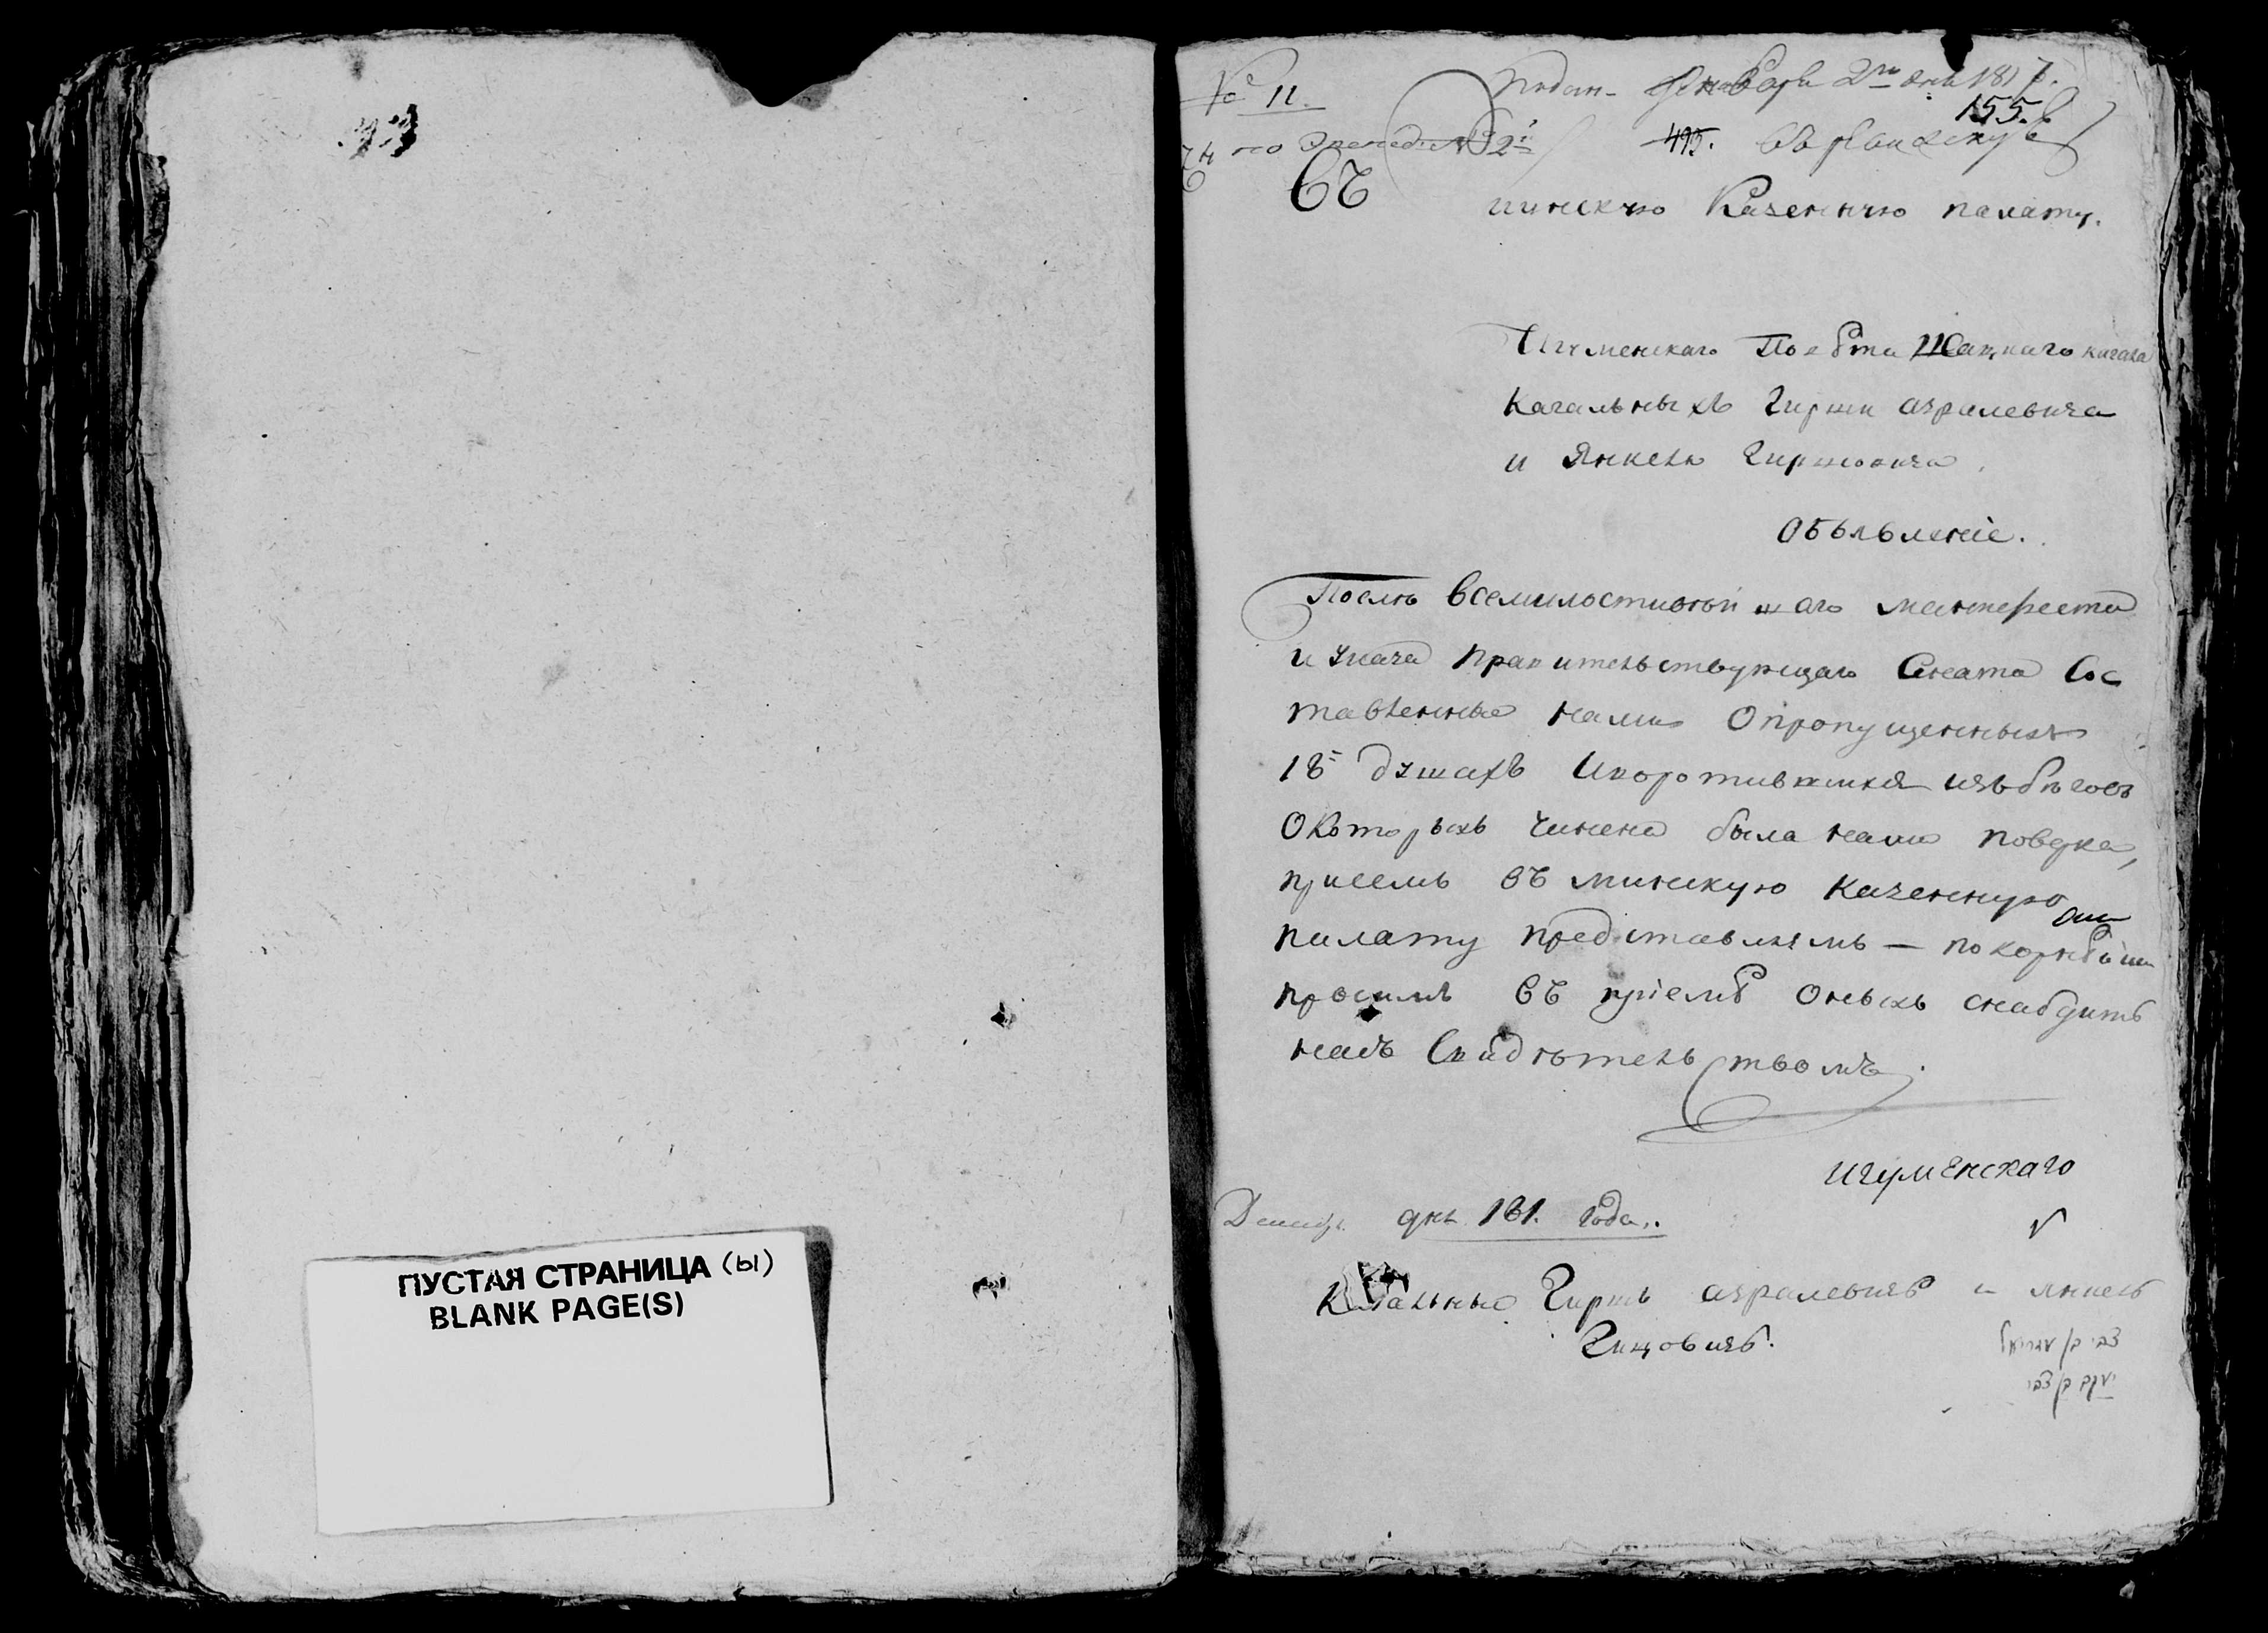 ПУСТАЯ СТРАНИЦА (ы)
BLANK PAGE(S)
№ 11.
Подан. Генваря 2го дня 1817.
155.
495.
Въ
минскую Казенную палату.
Игуменскаго Повѣта Шацкаго кагала
Кагальныхъ Гирши азралевича
и Янкеля Гиршовича.
Объявленіе.
Послѣ всемилостивѣйшаго манифеста
и указа правительствующаго Сената Сос
тавленные нами О пропущенныхъ
18 душахъ И воротившихся изъ бѣговъ
О Которыхъ Чинена была нами поверка,
при семъ въ минскую Казенную
палату представляемъ — покорнѣйше
просимъ въ пріемѣ Оныхъ снабдить
насъ Свидѣтельствомъ.
игуменскаго
Декабр. дня 181. года.
Кагальные Гиршъ азралевичъ и янкель
Гиршовичъ.
צבי בן עזריאל
יעקב בן צבי